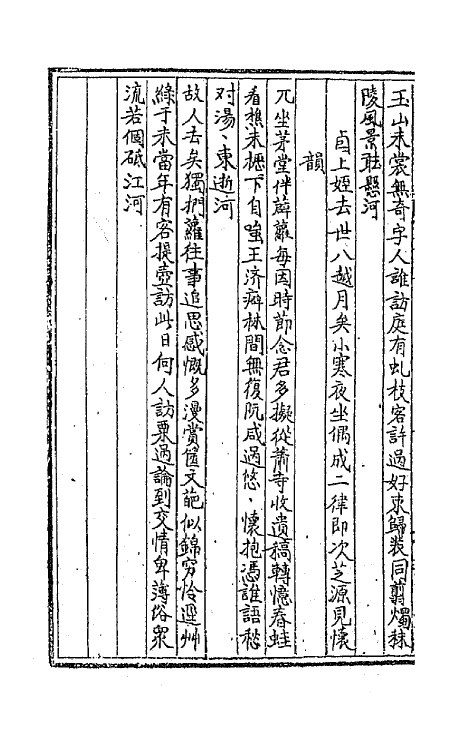 玉山禾裳無奇字人誰訪庭有虬枝客許過好束歸裝同翦燭秣
陵風景耐懸河
卣上姪去世八越月矣小寒夜坐偶成二律即次芝源見懷
韻
兀坐茅堂伴薜蘿每因時節念君多擬從蕭寺收遺稿轉憶春蛙
看樵禾櫪下自嗤王济癖林間無復阮咸過悠〻懷抱憑誰語愁
对湯〻東逝河
故人去矣獨捫蘿往事追思感慨多漫賞文葩似錦穷怜逕艸
綠于禾當年有客提壺訪此日何人訪粟過論到交情卑薄俗衆
流若個砥江河